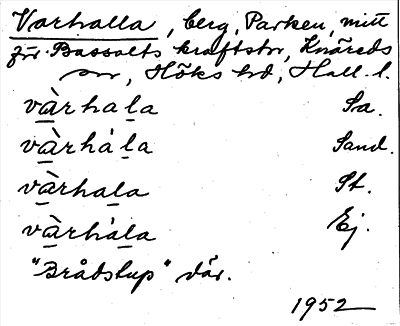 Varhalla, berg, Parken, mitt
för Bassalts kraftstn, Knäreds
sn, Höks hd, Hall. l.
vàrhala Sa.
vàrhá la Sand.
vàrhala St.
vàrhála Ej.
"Brådstup" där.
1952